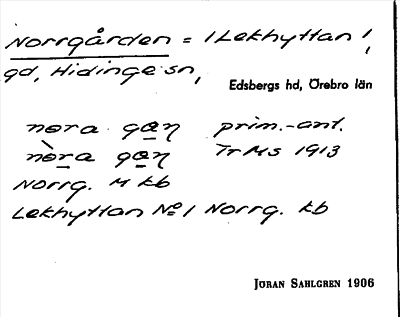 Norrgården = 1 Lekhyttan 1,
gd, Hidinge sn,
Edsbergs hd, Örebro län
nora gaŋ prim.-ant.
nòra gaŋ TrMs 1913
Norrg. M kb
Lekhyttan No 1 Norrg. kb
JÖRAN SAHLGREN 1906